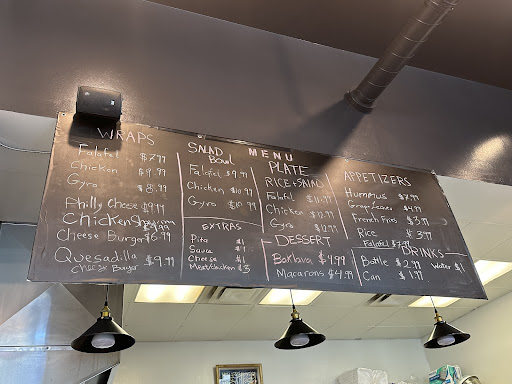 MENU
WRAPS
Falafel $7.99
Chicken $9.99
Gyro $8.99
Philly Cheese $9.99
Chicken Shawarma
Cheese Burger $6.99
Quesadilla $9.99
Cheese Burger
SALAD
Bowl
Falafel $9.99
Chicken $10.99
Gyro $10.99
EXTRAS
Pita $1
Sauce $1
Cheese $1
Meat/chicken $3
PLATE
RICE & SALAD
Falafel $11.99
Chicken $12.99
Gyro $12.99
DESSERT
Baklava $4.99
Macarons $4.99
APPETIZERS
Hummus $7.99
Grape Leaves $4.99
French Fries $3.99
Rice $3.99
Falafel
DRINKS
Bottle $2.99
Water $1
Can $1.99